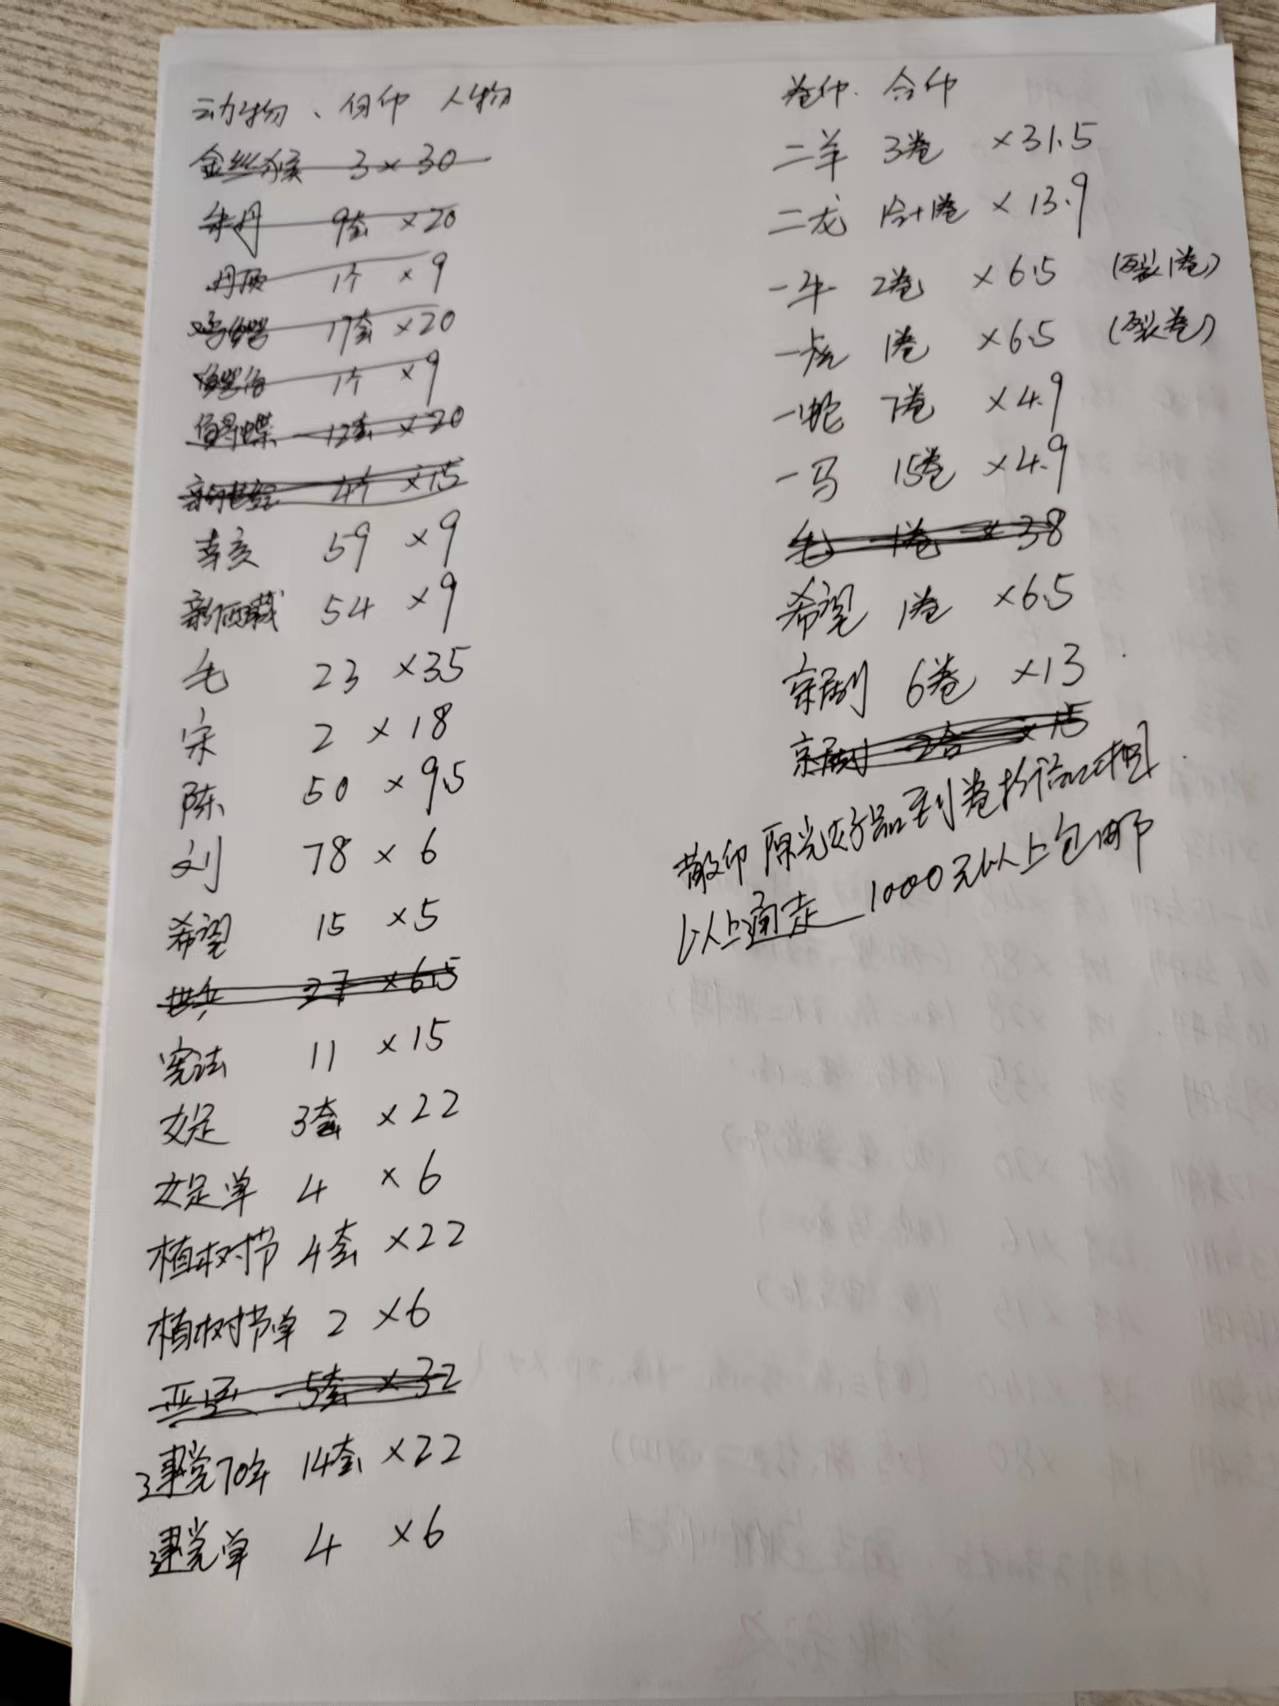 动物、伯仰 人物
金丝猴 3×30
牡丹 9套×20
丹顶 1个×9
17套×20
1个×9
蝶 12套×20
4个×15
辛亥 59×9
新西藏 54×9
毛 23×35
宋 2×18
陈 50×9.5
刘 78×6
希望 15×5
27×6.5
宪法 11×15
女足 3套×22
女足单 4×6
植树节 4套×22
植树节单 2×6
5套×32
建党70年 14套×22
建党单 4×6
卷仰、合仰
二羊 3卷 ×31.5
二龙 1合+1卷 ×13.9
一牛 2卷 ×6.5 (裂1卷)
一虎 1卷 ×6.5 (裂卷)
一蛇 7卷 ×4.9
一马 15卷 ×4.9
毛 1卷 ×38
希望 1卷 ×6.5
京剧 6卷 ×13
京剧 2合 ×15
散仰原光好品到卷拆信封
以上通走 1000元以上包邮